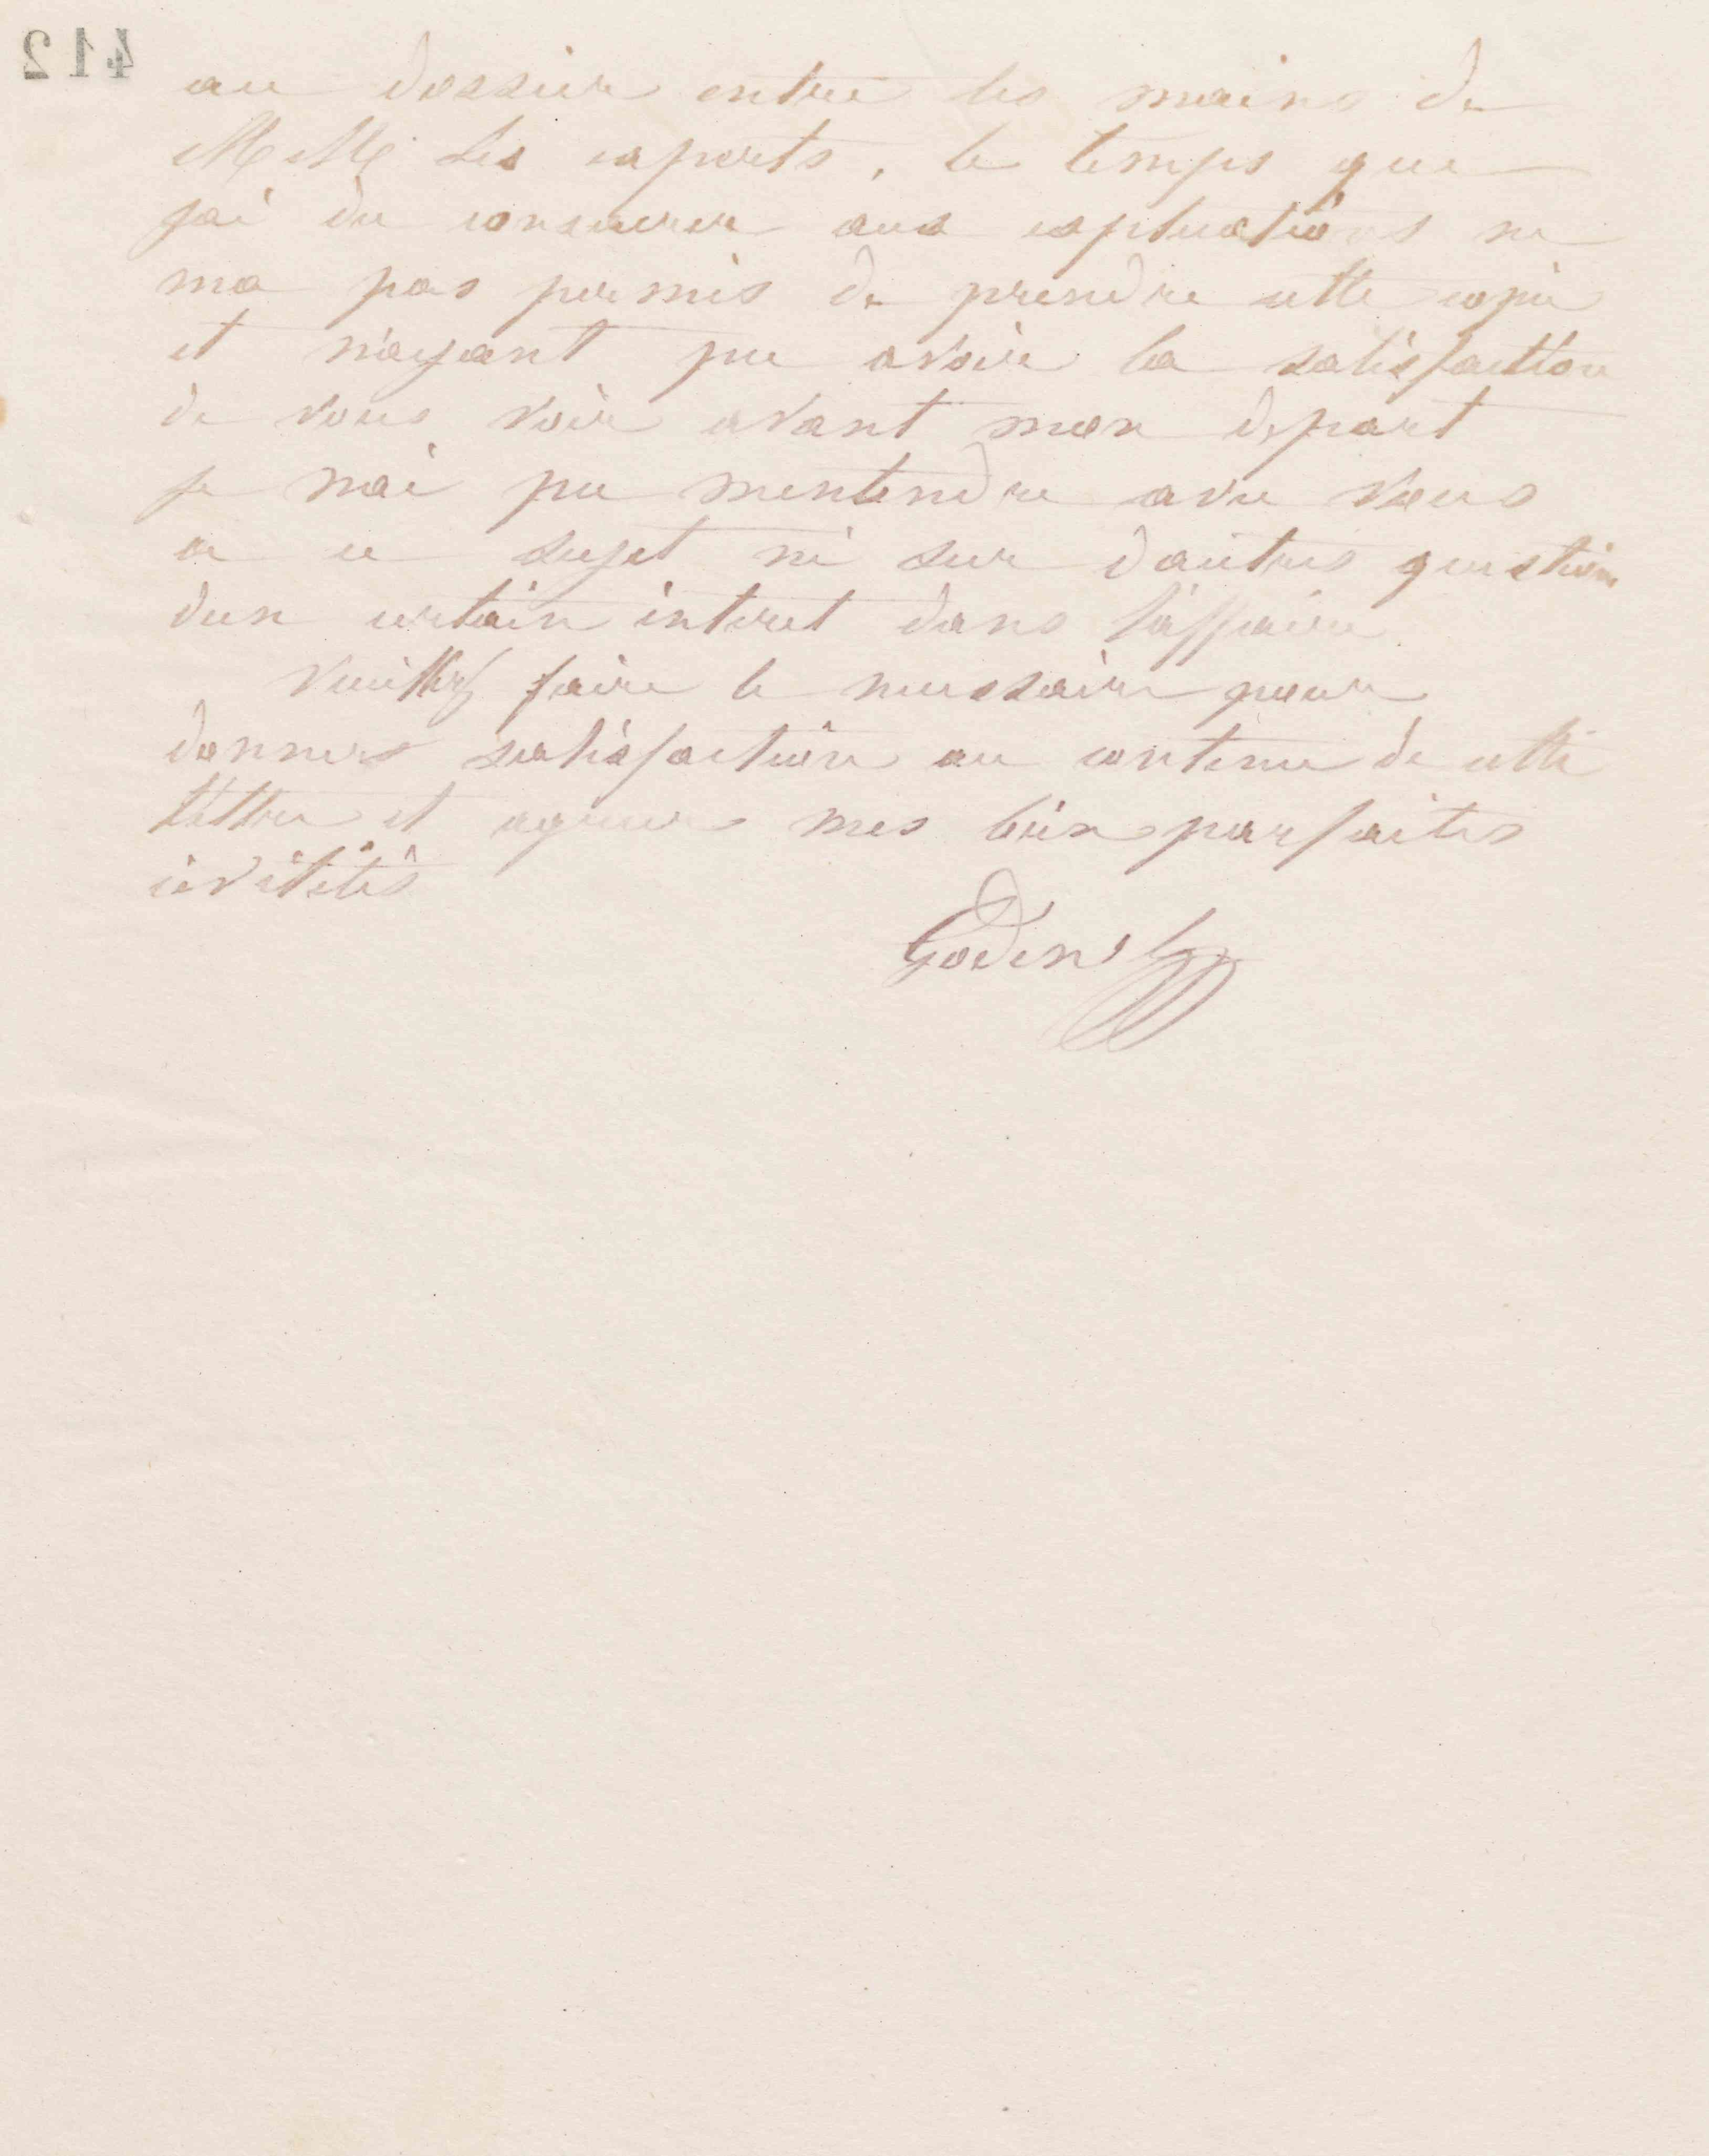 412
au dossier entre les mains de
MM les experts, le temps que
jai du consacrer aux explications ne
ma pas permis de prendre cette copie
et nayant pu avoir la satisfaction
de vous voir avant mon depart
je nai pu mentendre avec vous
a ce sujet ni sur dautres questions
dun certain interet dans laffaire
Veuillez faire le necessaire pour
donner satisfaction au contenu de cette
lettre et agreer mes bien parfaites
civilités
Godin